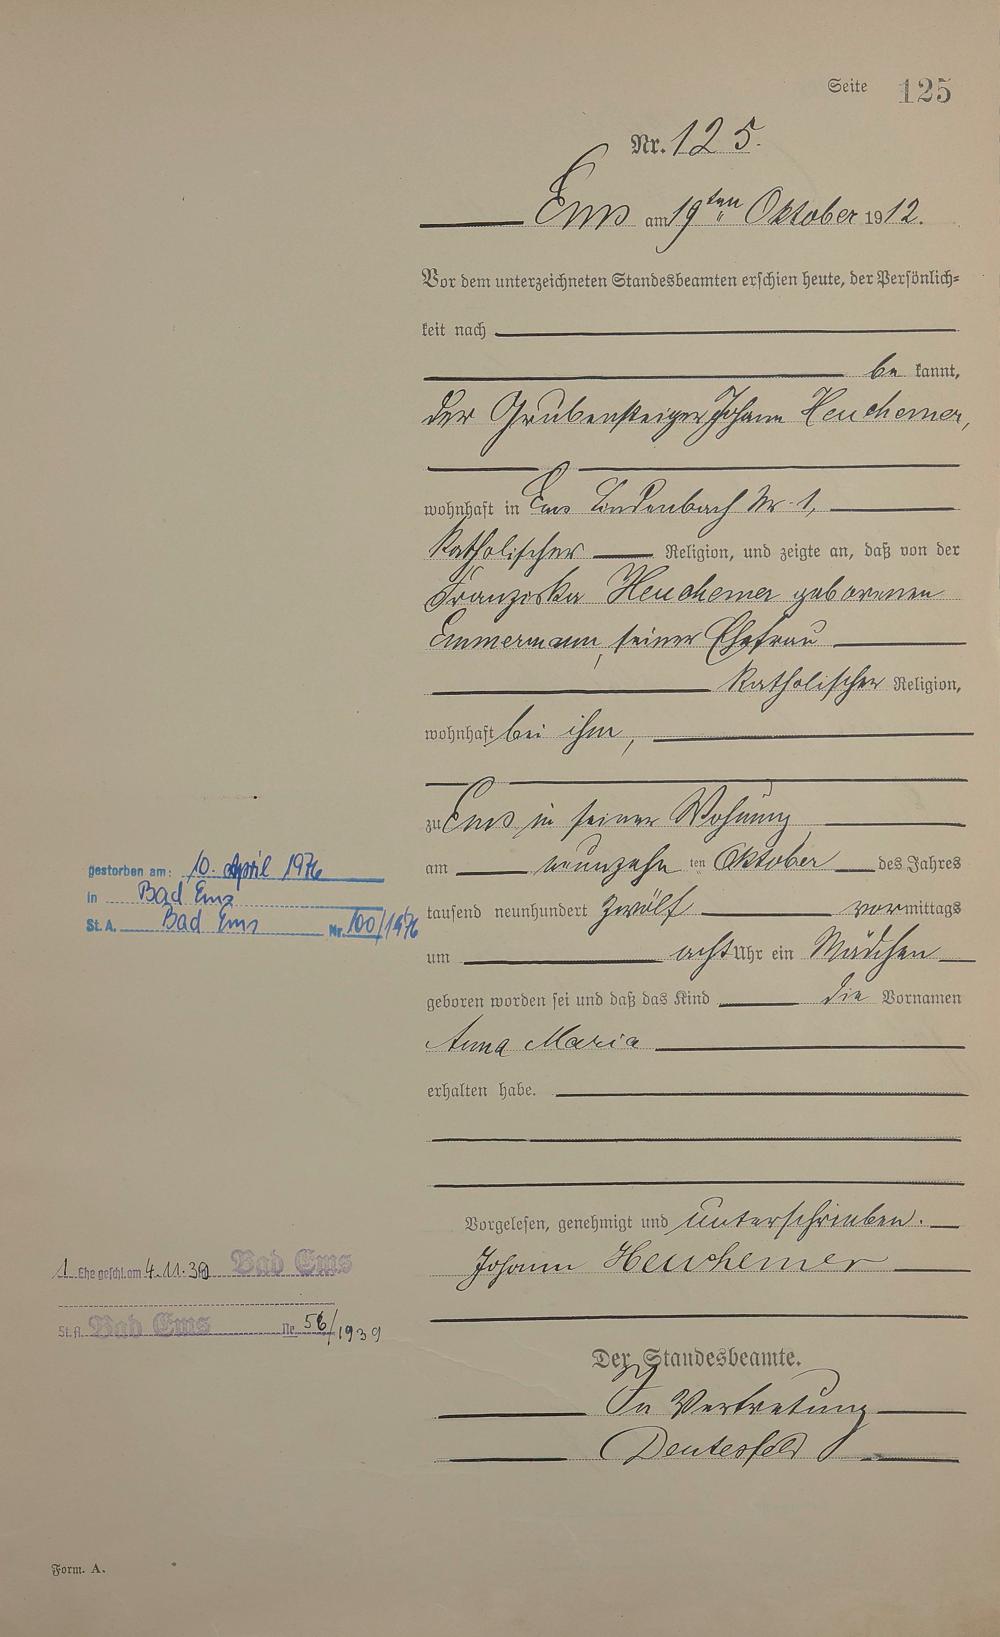 Seite 125
Nr. 125.
Ems am 19ten Oktober 1912.
Vor dem unterzeichneten Standesbeamten erschien heute, der Persönlich-
keit nach
be kannt,
der Grubensteiger Johann Heuchemer,
wohnhaft in Ems Lindenbach Nr. 1,
katholischer Religion, und zeigte an, daß von der
Franziska Heuchemer geborenen
Emmermann, seiner Ehefrau
katholischer Religion,
wohnhaft bei ihm,
zu Ems in seiner Wohnung
am neunzehn ten Oktober des Jahres
tausend neunhundert zwölf vormittags
um acht Uhr ein Mädchen
geboren worden sei und daß das Kind die Vornamen
Anna Maria
erhalten habe.
Vorgelesen, genehmigt und unterschrieben.
Johann Heuchemer
Der Standesbeamte.
In Vertretung
gestorben am: 10. April 1976
in Bad Ems
St. A. Bad Ems Nr. 100/1976
1. Ehe geschl. am 4.11.39 Bad Ems
St. A. Bad Ems Nr. 58/1939
Form. A.